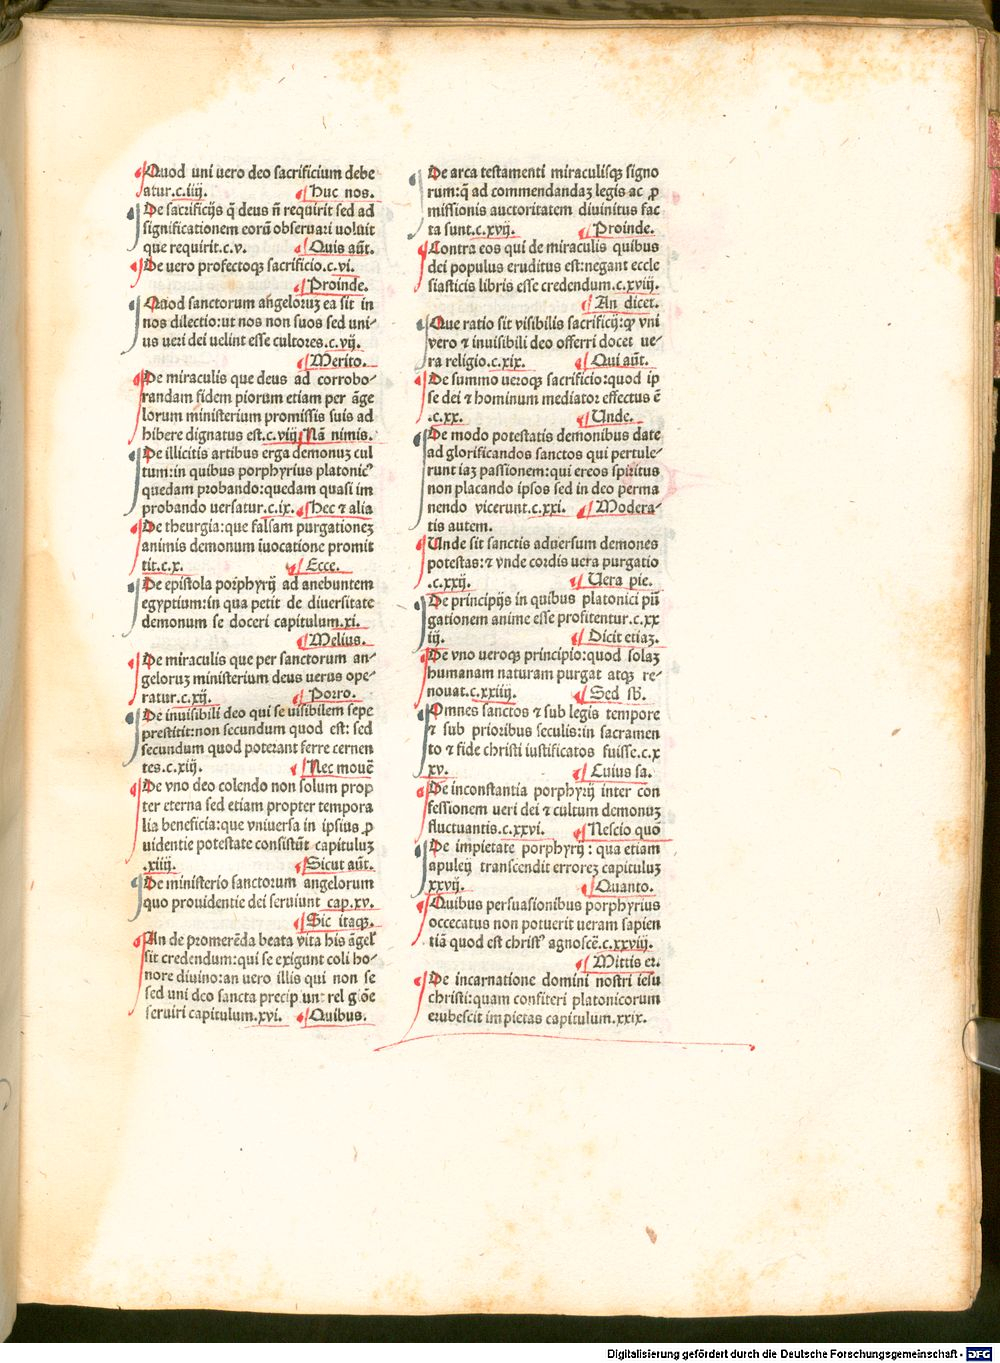 Quod uni uero deo sacrificium debe
atur.c.iiij. Huc nos.
De sacrificijs q̄ deus n̄ requirit sed ad
significationem eorū obseruari uoluit
que requirit.c.v. Quis aūt.
De uero profectoqꝫ sacrificio.c.vi.
Proinde.
Quod sanctorum angeloruꝫ ea sit in
nos dilectio:ut nos non suos sed uni-
us ueri dei uelint esse cultores.c.vij.
Merito.
De miraculis que deus ad corrobo-
randam fidem piorum etiam per āge
lorum ministerium promissis suis ad
hibere dignatus est.c.viij Nā nimis.
De illicitis artibus erga demonuꝫ cul
tum:in quibus porphyrius platonicꝰ
quedam probando:quedam quasi im
probando uersatur.c.ix. Hec ⁊ alia
De theurgia:que falsam purgationeꝫ
animis demonum īuocatione promit
tit.c.x. Ecce.
De epistola porphyrij ad anebuntem
egyptium:in qua petit de diuersitate
demonum se doceri capitulum.xi.
Melius.
De miraculis que per sanctorum an-
geloruꝫ ministerium deus uerus ope-
ratur.c.xij. Porro.
De inuisibili deo qui se uisibilem sepe
prestitit:non secundum quod est: sed
secundum quod poterant ferre cernen
tes.c.xiij. Nec mouē
De vno deo colendo non solum prop
ter eterna sed etiam propter tempora
lia beneficia:que vniuersa in ipsius ꝓ
uidentie potestate consistūt capituluꝫ
.xiiij. Sicut aūt.
De ministerio sanctorum angelorum
quo prouidentie dei seruiunt cap.xv.
Sic itaqꝫ.
An de promerēda beata vita his āgel'
sit credendum:qui se exigunt coli ho-
nore diuino:an uero illis qui non se
sed uni deo sancta precipiunt religiōe
seruiri capitulum.xvi. Quibus.
De arca testamenti miraculisqꝫ signo
rum:q̄ ad commendandaꝫ legis ac ꝓ
missionis auctoritatem diuinitus fac
ta sunt.c.xvij. Proinde.
Contra eos qui de miraculis quibus
dei populus eruditus est:negant eccle
siasticis libris esse credendum.c.xviij.
An dicet.
Que ratio sit visibilis sacrificij:qꝫ vni
vero ⁊ inuisibili deo offerri docet ue-
ra religio.c.xix. Qui aūt.
De summo ueroqꝫ sacrificio:quod ip
se dei ⁊ hominum mediator effectus ē
.c.xx. Unde.
De modo potestatis demonibus date
ad glorificandos sanctos qui pertule-
runt iaꝫ passionem:qui ereos spiritus
non placando ipsos sed in deo perma
nendo vicerunt.c.xxi. Modera-
tis autem.
Unde sit sanctis aduersum demones
potestas:⁊ vnde cordis uera purgatio
.c.xxij. Uera pie.
De principijs in quibus platonici pur̄
gationem anime esse profitentur.c.xx
iij. Dicit etiaꝫ.
De vno ueroqꝫ principio:quod solaꝫ
humanam naturam purgat atqꝫ re-
nouat.c.xxiiij. Sed sb̄.
Omnes sanctos ⁊ sub legis tempore
⁊ sub prioribus seculis:in sacramen
to ⁊ fide christi iustificatos fuisse.c.x
xv. Cuius sa.
De inconstantia porphyrij inter con
fessionem ueri dei ⁊ cultum demonuꝫ
fluctuantis.c.xxvi. Nescio quō
De impietate porphyrij: qua etiam
apuleij transcendit erroreꝫ capituluꝫ
xxvij. Quanto.
Quibus persuasionibus porphyrius
occecatus non potuerit ueram sapien
tiā quod est christꝰ agnoscē.c.xxviij.
Mittis er.
De incarnatione domini nostri iesu
christi:quam confiteri platonicorum
erubescit impietas capitulum.xxix.
Digitalisierung gefördert durch die Deutsche Forschungsgemeinschaft - DFG